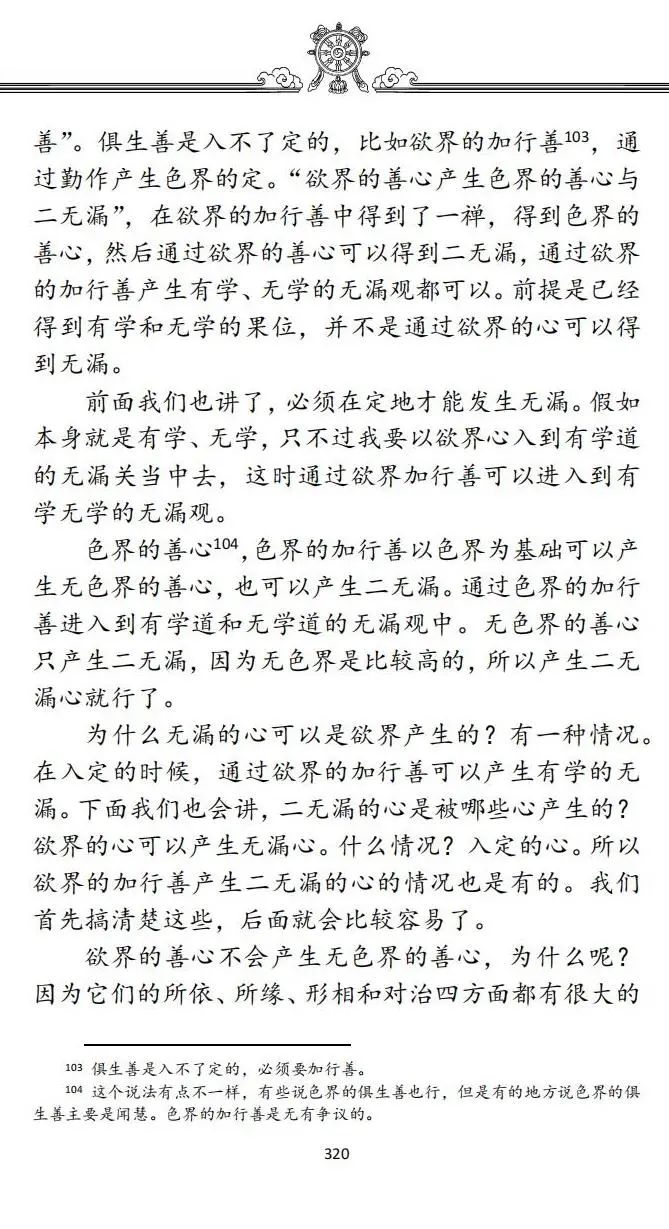 善”。俱生善是入不了定的，比如欲界的加行善103，通
过勤作产生色界的定。“欲界的善心产生色界的善心与
二无漏”，在欲界的加行善中得到了一禅，得到色界的
善心，然后通过欲界的善心可以得到二无漏，通过欲界
的加行善产生有学、无学的无漏观都可以。前提是已经
得到有学和无学的果位，并不是通过欲界的心可以得
到无漏。
前面我们也讲了，必须在定地才能发生无漏。假如
本身就是有学、无学，只不过我要以欲界心入到有学道
的无漏关当中去，这时通过欲界加行善可以进入到有
学无学的无漏观。
色界的善心104，色界的加行善以色界为基础可以产
生无色界的善心，也可以产生二无漏。通过色界的加行
善进入到有学道和无学道的无漏观中。无色界的善心
只产生二无漏，因为无色界是比较高的，所以产生二无
漏心就行了。
为什么无漏的心可以是欲界产生的？有一种情况。
在入定的时候，通过欲界的加行善可以产生有学的无
漏。下面我们也会讲，二无漏的心是被哪些心产生的？
欲界的心可以产生无漏心。什么情况？入定的心。所以
欲界的加行善产生二无漏的心的情况也是有的。我们
首先搞清楚这些，后面就会比较容易了。
欲界的善心不会产生无色界的善心，为什么呢？
因为它们的所依、所缘、形相和对治四方面都有很大的
103 俱生善是入不了定的，必须要加行善。
104 这个说法有点不一样，有些说色界的俱生善也行，但是有的地方说色界的俱
生善主要是闻慧。色界的加行善是无有争议的。
320